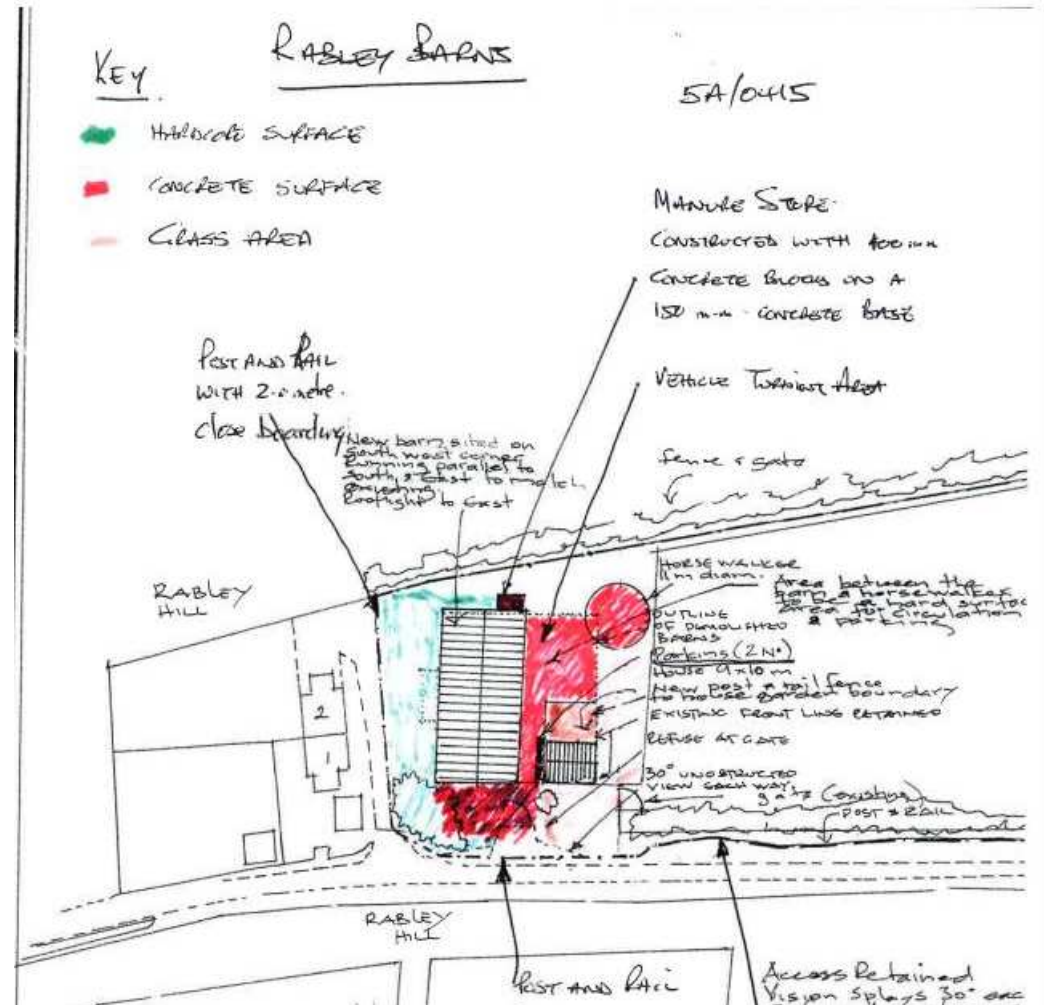 KEY
RABLEY BARNS
5A/0415
HARDCORE SURFACE
CONCRETE SURFACE
GRASS AREA
MANURE STORE.
CONSTRUCTED WITH 400 mm
CONCRETE BLOCKS ON A
150 m.m. CONCRETE BASE
POST AND RAIL
WITH 2.0 metre.
close boarding
VEHICLE TURNING AREA
New barn sited on
south west corner
running parallel to
south & East to match
existing.
Rooflight to East
fence & gate
RABLEY
HILL
HORSE WALKER
11m diam.
Area between the
barn & horsewalker
to be a hard surface
area for circulation
& parking
OUTLINE
OF DEMOLISHED
BARNS
Parking (2 No)
HOUSE 9x10 m
New post & rail fence
to house garden boundary
EXISTING FRONT LINE RETAINED
REFUSE AT GATE
30° UNOBSTRUCTED
VIEW EACH WAY
gate (existing)
POST & RAIL
2
1
RABLEY
HILL
POST AND RAIL
Access Retained
Vision splays 30°